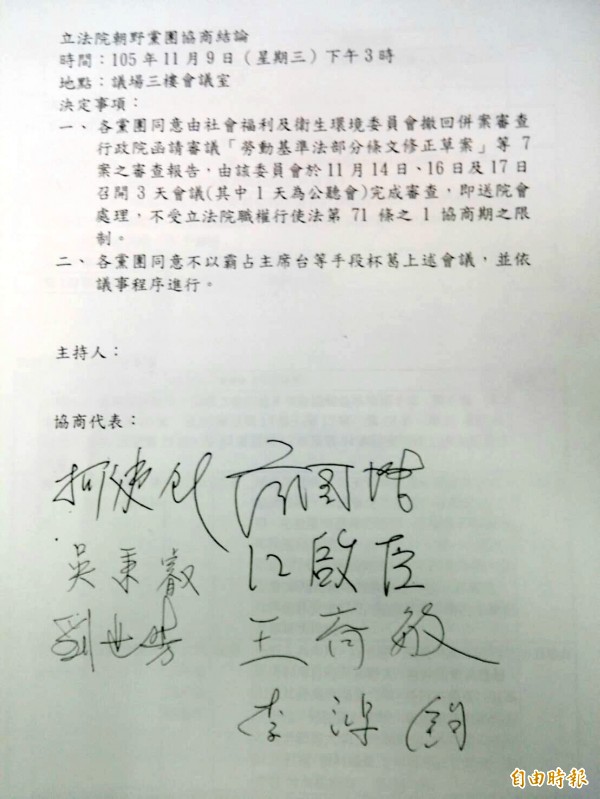 立法院朝野黨團協商結論
時間：105年11月9日（星期三）下午3時
地點：議場三樓會議室
決定事項：
一、各黨團同意由社會福利及衛生環境委員會撤回併案審查
行政院函請審議「勞動基準法部分條文修正草案」等 7
案之審查報告，由該委員會於11月14日、16日及17日
召開 3 天會議(其中 1 天為公聽會)完成審查，即送院會
處理，不受立法院職權行使法第 71 條之 1 協商期之限
制。
二、各黨團同意不以霸占主席台等手段杯葛上述會議，並依
議事程序進行。
主持人：
協商代表：
柯建銘 廖國棟
吳秉叡 江啟臣
劉世芳 王育敏
李鴻鈞
自由時報